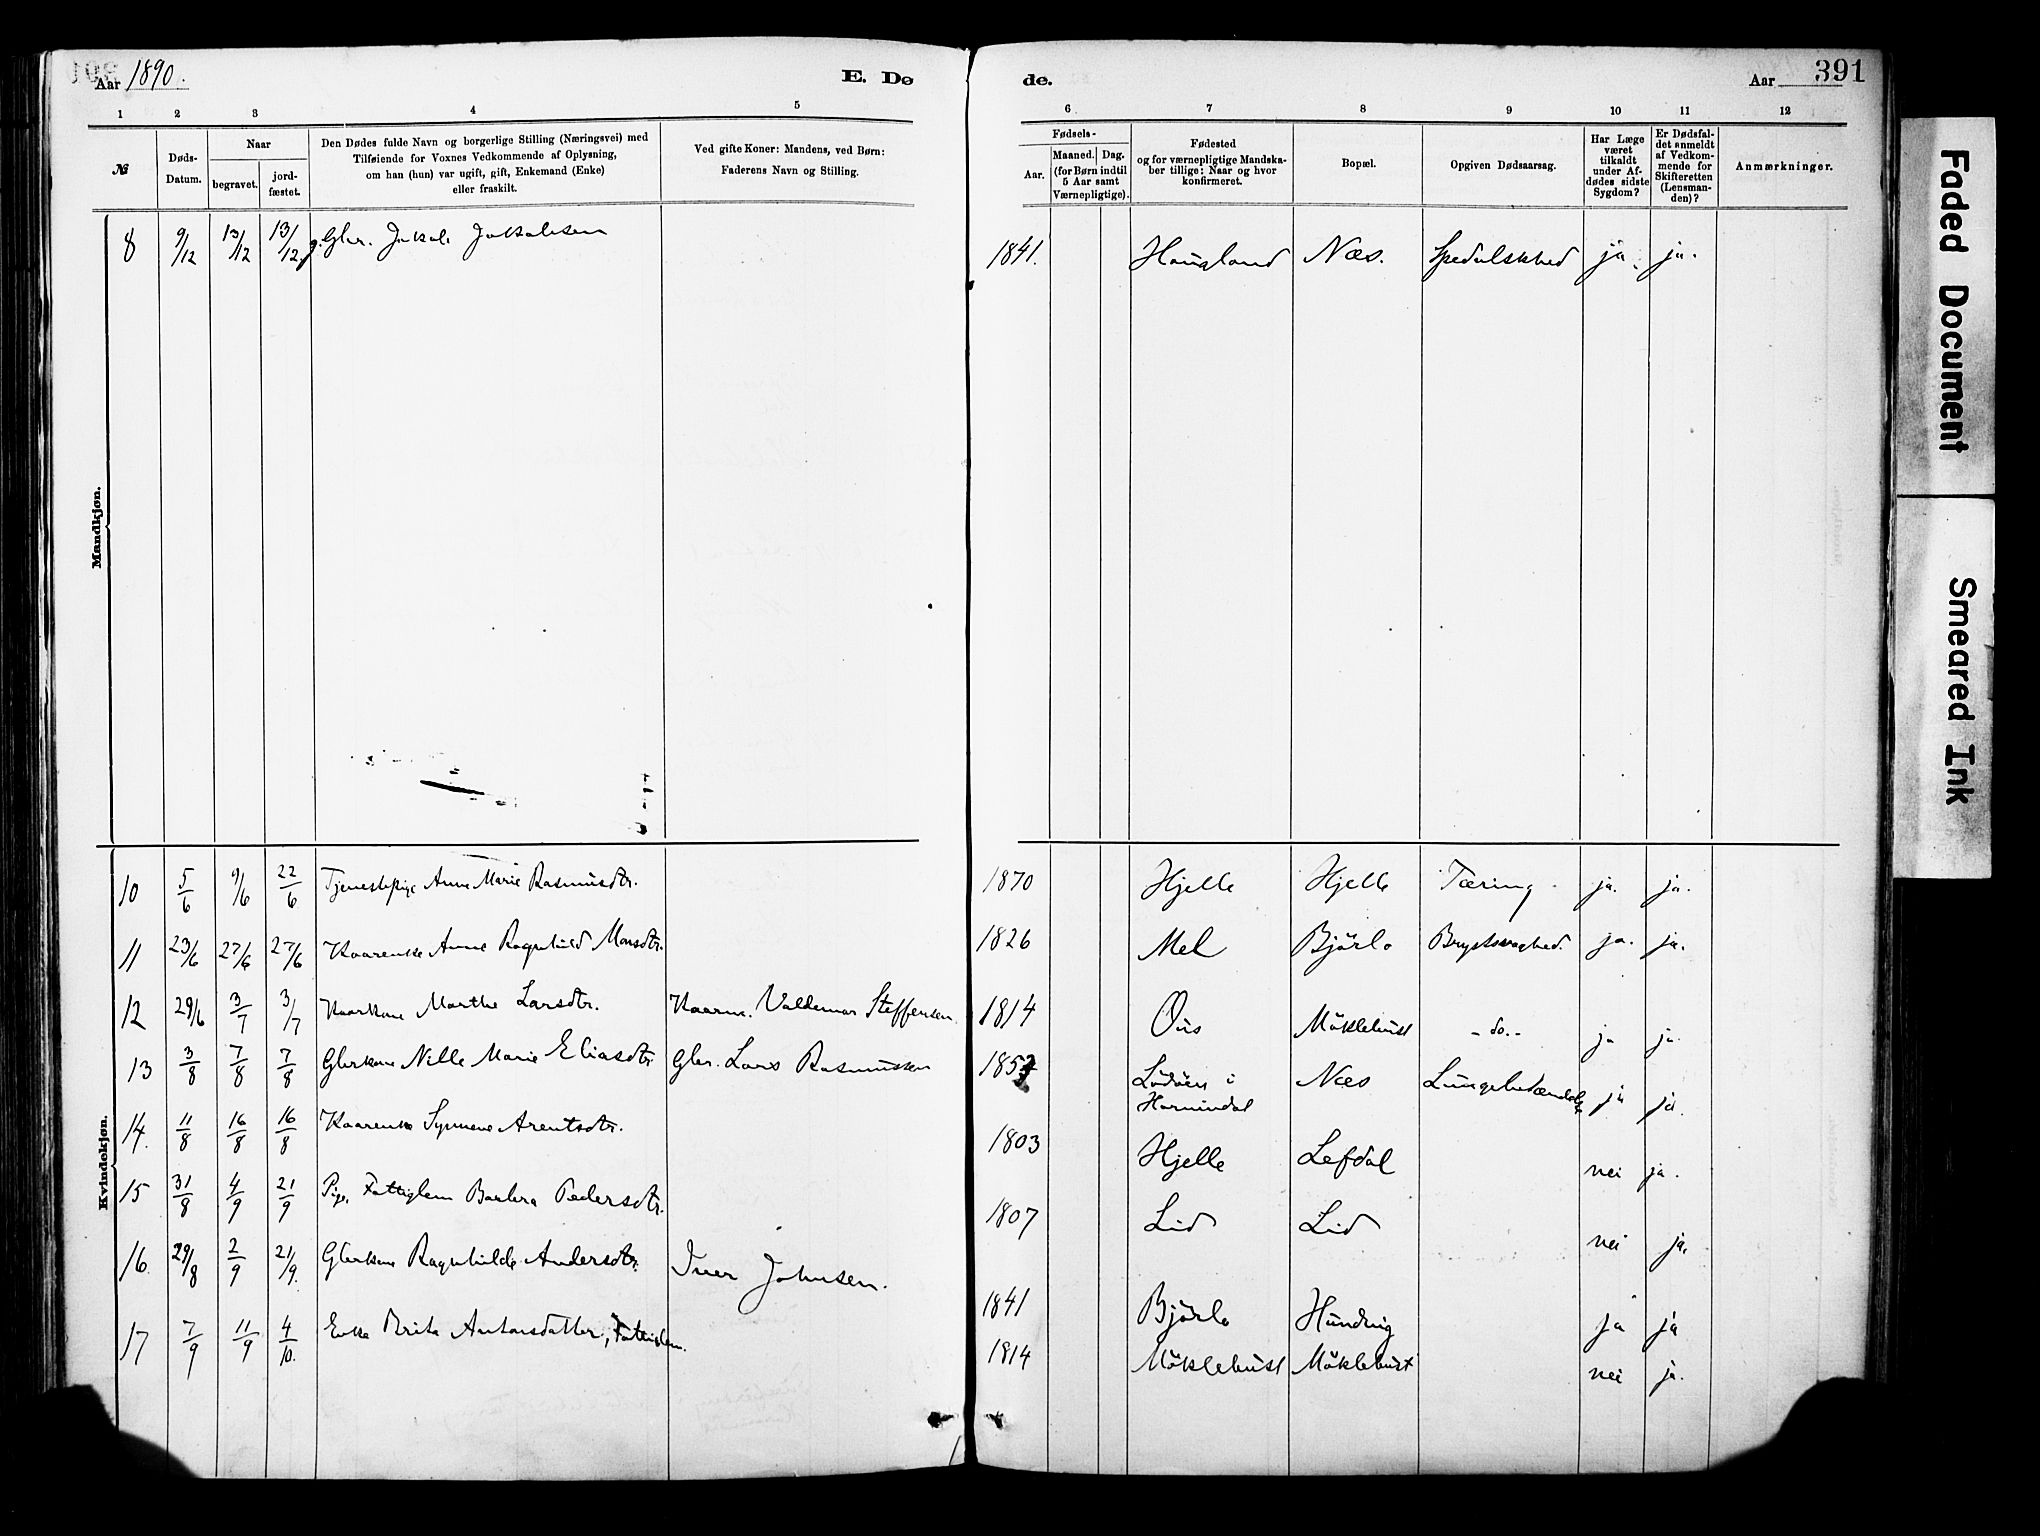 Aar 1890.
E. Døde.
Aar
391
1 2 3 4 5 6 7 8 9 10 11 12
№
Døds-Datum.
Naar
begravet.
jordfæstet.
Den Dødes fulde Navn og borgerlige Stilling (Næringsvei) med
Tilføiende for Voxnes Vedkommende af Oplysning,
om han (hun) var ugift, gift, Enkemand (Enke)
eller fraskilt.
Ved gifte Koner: Mandens, ved Børn:
Faderens Navn og Stilling.
Fødsels-
Aar.
Maaned. Dag.
(for Børn indtil
5 Aar samt
Værnepligtige).
Fødested
og for værnepligtige Mandska-
ber tillige: Naar og hvor
konfirmeret.
Bopæl.
Opgiven Dødsaarsag.
Har Læge
været
tilkaldt
under Af-
dødes sidste
Sygdom?
Er Dødsfal-
det anmeldt
af Vedkom-
mende for
Skifteretten
(Lensman-
den)?
Anmærkninger.
Mandkjøn.
8 9/12 13/12 13/12 g. Gbr. Jakob Jakobsen 1841. Haugland Næs. Spedalskhed ja. ja.
Kvindekjøn.
10 5/6 9/6 22/6 Tjenestepige Anne Marie Rasmusdtr. 1870 Hjelle Hjelle Tæring. ja. ja.
11 23/6 27/6 27/6 Kaarenke Anne Ragnhild Monsdtr. 1826 Mel Bjørlo Brystsvaghed. ja. ja.
12 29/6 3/7 3/7 Kaarkone Marthe Larsdtr. Kaarm. Valdemar Steffensen. 1814 Ous Møklebust - do. - ja ja
13 3/8 7/8 7/8 Gbrkone Nille Marie Eliasdtr. Gbr. Lars Rasmussen Hornindal Næs Lungebetændelse ja ja.
14. 11/8 16/8 16/8 Kaarenke Synneve Arentsdtr. 1803 Hjelle Lefdal nei ja.
15 31/8 4/9 21/9 Pige, Fattiglem Barbra Pedersdtr. 1807 Lid Lid nei ja.
16. 29/8 2/9 21/9. Gbrkone Ragnhilde Andersdtr. Iver Johnsen. 1841 Bjørlo Hundeig ja ja
17 7/9 11/9 4/10. Enke Brita Antonsdatter, Fattiglem. 1814 Møklebust Møklebust nei ja.
Faded Document
Smeared Ink